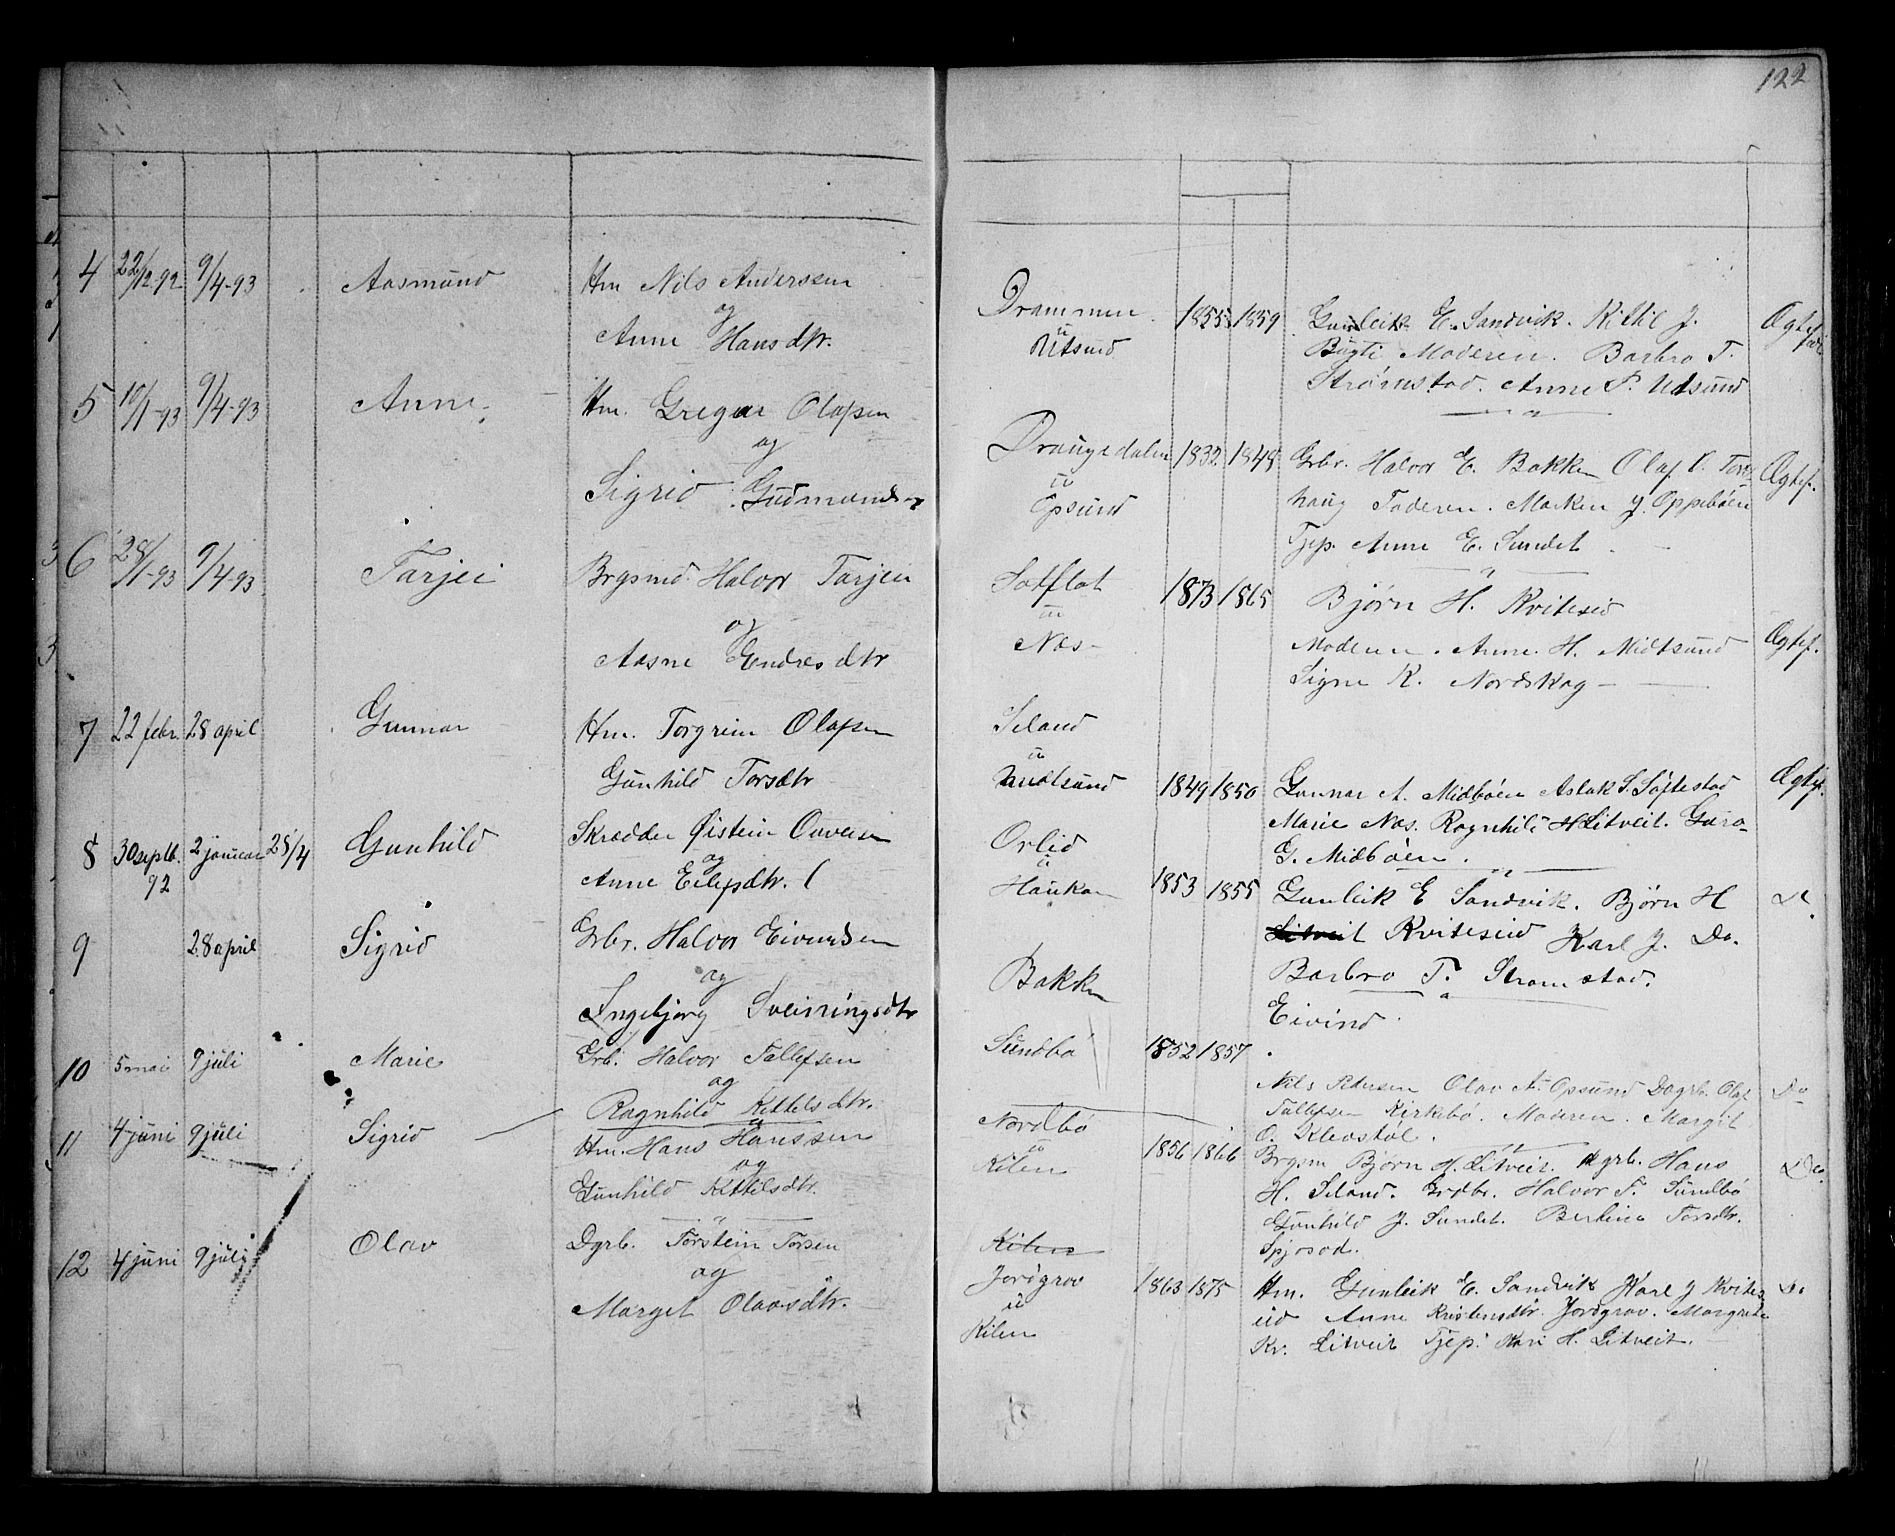 122
4 22/12-92 9/4-93 Aasmund Hm Nils Anderssen
og
Anne Hansdtr.
Drammen 1855 1859 Gunleik E. Sandvik. Kittil J.
u
Utsund
Bøgti Moderen. Barbro T.
Strømstad. Anne P. Udsund
Ægtef.
5 10/1-93 9/4-93 Anne Hm. Gregar Olafsen
og
Sigrid Gudmunds
Drangedalen 1832 1848 Grbr. Halvor E. Bakken Olaf
u
Opsund
haug Faderen. Marken J. Oppebøen
Tjep. Anne E. Sundet
Ægtef.
6 28/1-93 9/4-93 Tarjei Brgsmd. Halvor Tarjeis
og
Aasne Endresdtr
1873 1865 Bjørn H. Kviteseid
Næs
Moderen. Anne H. Midtsund
Signe K. Nordskog
Ægtef.
7 22 febr. 28 april Gunnar Hm. Torgrim Olafsen
Gunhild Torsdtr
Seland
u
Midtsund 1849 1850 Gunnar A. Midbøen Aslak S. Søftestad
Marie Næs. Ragnhild H Litveit. Guro
G. Midbøen.
Ægtef.
8 30 septb. 92 2 januar 28/4 Gunhild Skrædder Øistein
og
Anne Eilefsdtr.
Orlid
u
Haukom 1853 1855 Gunleik E Sandvik. Bjørn H
Litveit Kviteseid Karl J. Do.
Barbro T. Strømstad.
Do.
9 28 april Sigrid Grbr. Halvor Eivindsen
og
Ingebjørg Sveinungsdtr
Bakken
Eivind
10 5 mai 9 juli Marie Grb. Halvor Tallefsen
og
Ragnhild Kittelsdtr.
Sundbø 1852 1857
Nils Petersen Olav A. Opsund Dagrb. Olaf
Tallefsen Kirkebø. Moderen. Margit
O. Klevstøl.
Do
11 4 juni 9 juli Sigrid Hm. Hans Hanssen
og
Gunhild Kittelsdtr.
Nordbø
u
Kilen 1856 1866 Brgsm Bjørn H. Litveit. Hans
H. Seland. Grdbr. Halvor T. Sundbø
Gunhild J. Sundet. Berline Torsdtr.
Spjosod.
Do.
12 4 juni 9 juli Olav Dgrb. Torstein Torsen
og
Marget Olavsdtr.
Kilen
Jordgrav
u
Kilen 1863 1875 Hm. Gunleik E. Sandvik Karl J Kvites
eid Anne Kristensdtr. Jordgrav. Margrete
Kr. Litveit Tjep. Kari H. Litveit.
Do